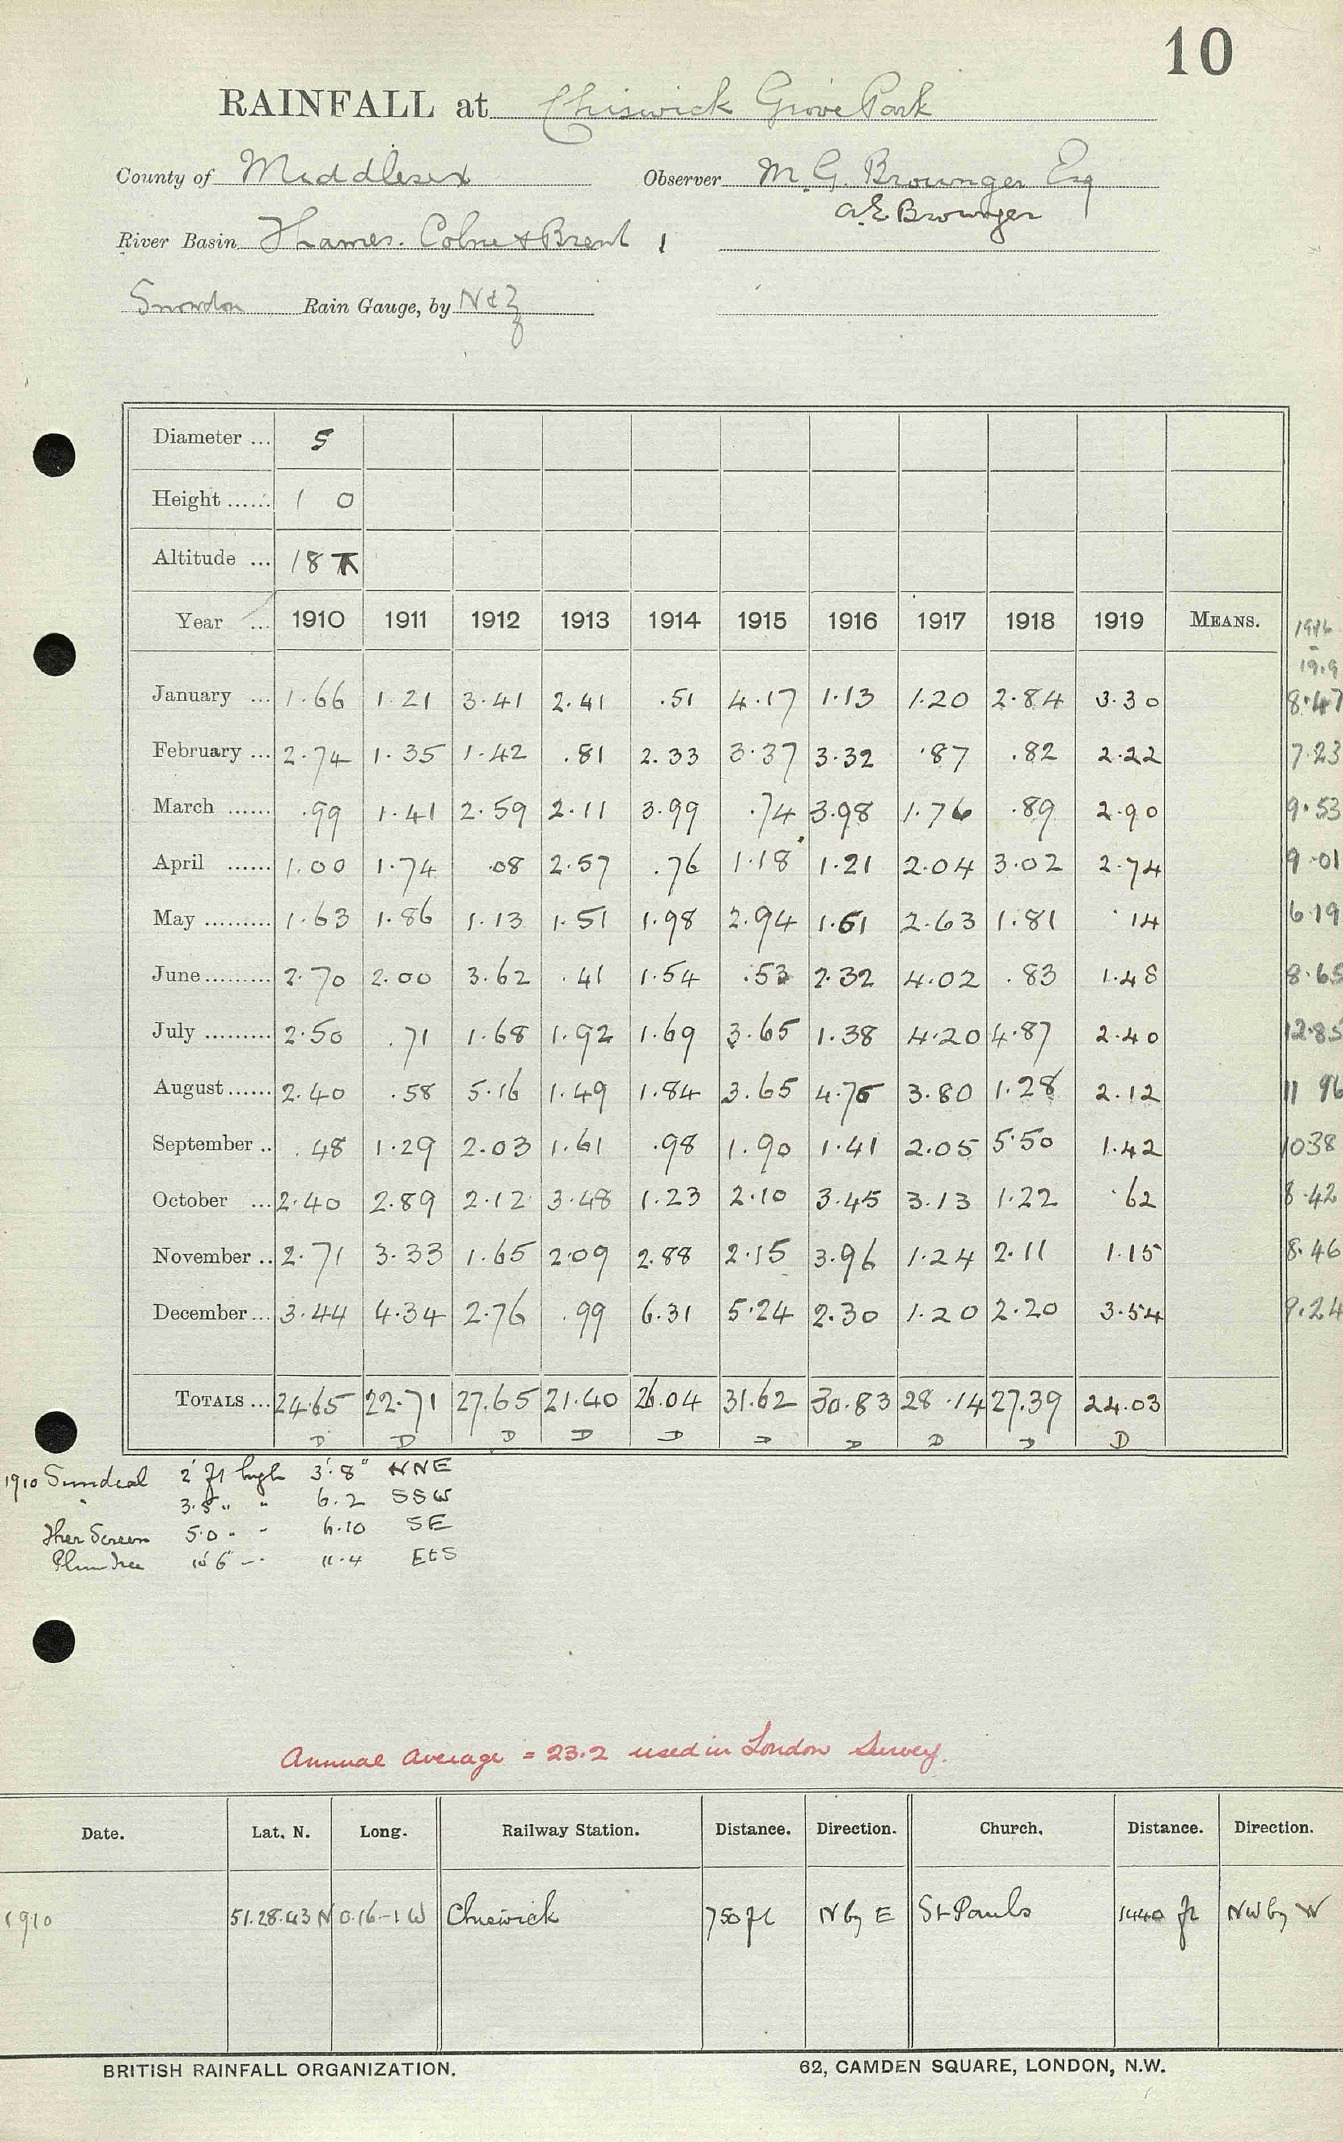 10
RAINFALL at Chiswick Grove Park
County of Middlesex Observer M. G. Brounger Esq
A.E Brounger
River Basin Thames. Colne & Brent 1
Snowdon Rain Gauge, by N & Z
Diameter ... 5
Height ...... 1 0
Altitude ... 18
Year ... 1910 1911 1912 1913 1914 1915 1916 1917 1918 1919 MEANS. 1916 - 19.9
January ... 1.66 1.21 3.41 2.41 .51 4.17 1.13 1.20 2.84 3.30 8.47
February ... 2.74 1.35 1.42 .81 2.33 3.37 3.32 .87 .82 2.22 7.23
March ...... .99 1.41 2.59 2.11 3.99 .74 3.98 1.76 .89 2.90 9.53
April ...... 1.00 1.74 .08 2.57 .76 1.18 1.21 2.04 3.02 2.74 9.01
May ......... 1.63 1.86 1.13 1.51 1.98 2.94 1.61 2.63 1.81 .14 6.19
June ......... 2.70 2.00 3.62 .41 1.54 .53 2.32 4.02 .83 1.48 8.65
July ......... 2.50 .71 1.68 1.92 1.69 3.65 1.38 4.20 4.87 2.40 12.85
August ...... 2.40 .58 5.16 1.49 1.84 3.65 4.76 3.80 1.28 2.12 11 96
September .. .48 1.29 2.03 1.61 .98 1.90 1.41 2.05 5.50 1.42 1038
October ... 2.40 2.89 2.12 3.48 1.23 2.10 3.45 3.13 1.22 .62 8.42
November .. 2.71 3.33 1.65 2.09 2.88 2.15 3.96 1.24 2.11 1.15 8.46
December ... 3.44 4.34 2.76 .99 6.31 5.24 2.30 1.20 2.20 3.54 9.24
TOTALS ... 24.65 22.71 27.65 21.40 26.04 31.62 30.83 28.14 27.39 24.03
D D D D D D D D D D
1910 Sundial 2' ft high 3'.8" NNE
" 3.5 " " 6.2 SSW
Ther Screen 5.0 " " 6.10 SE
Plum tree 10'6" - " 11.4 E t S
Annual average = 23.2 used in London Survey.
Date. Lat. N. Long. Railway Station. Distance. Direction. Church. Distance. Direction.
1910 51.28.43 N 0.16-1 W Chiswick 750 ft N by E St Pauls 1440 ft NW by W
BRITISH RAINFALL ORGANIZATION. 62, CAMDEN SQUARE, LONDON, N.W.